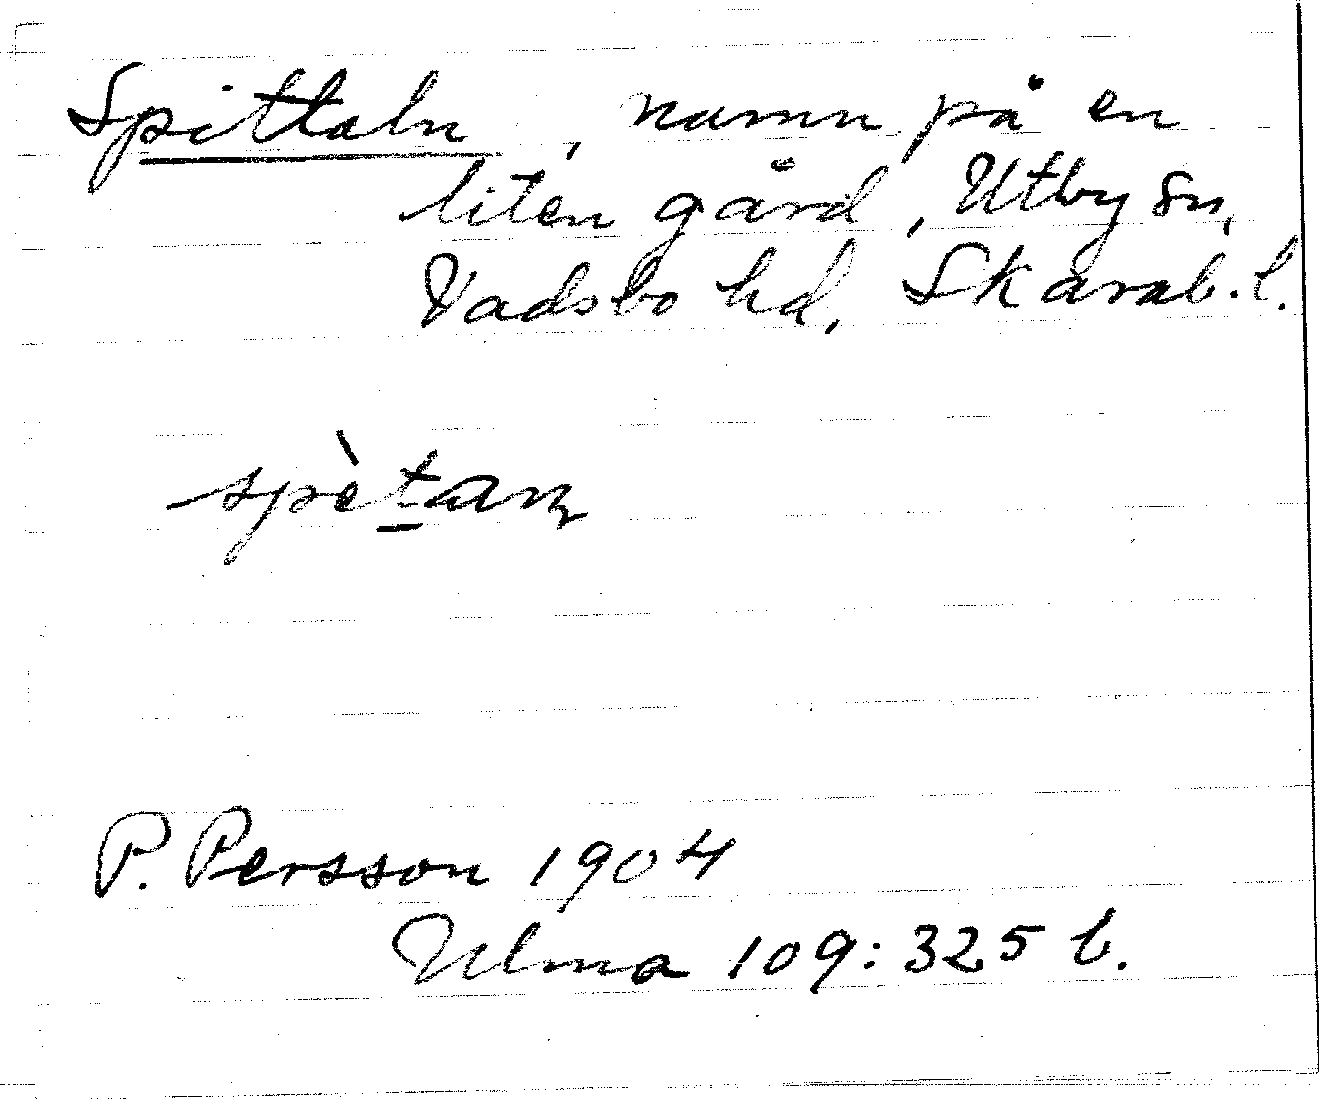 Spittaln, namn på en
liten gård, Utby sn,
Vadsbo hd, Skarab. l.
spètan
P. Persson 1904
Ulma 109:325 b.